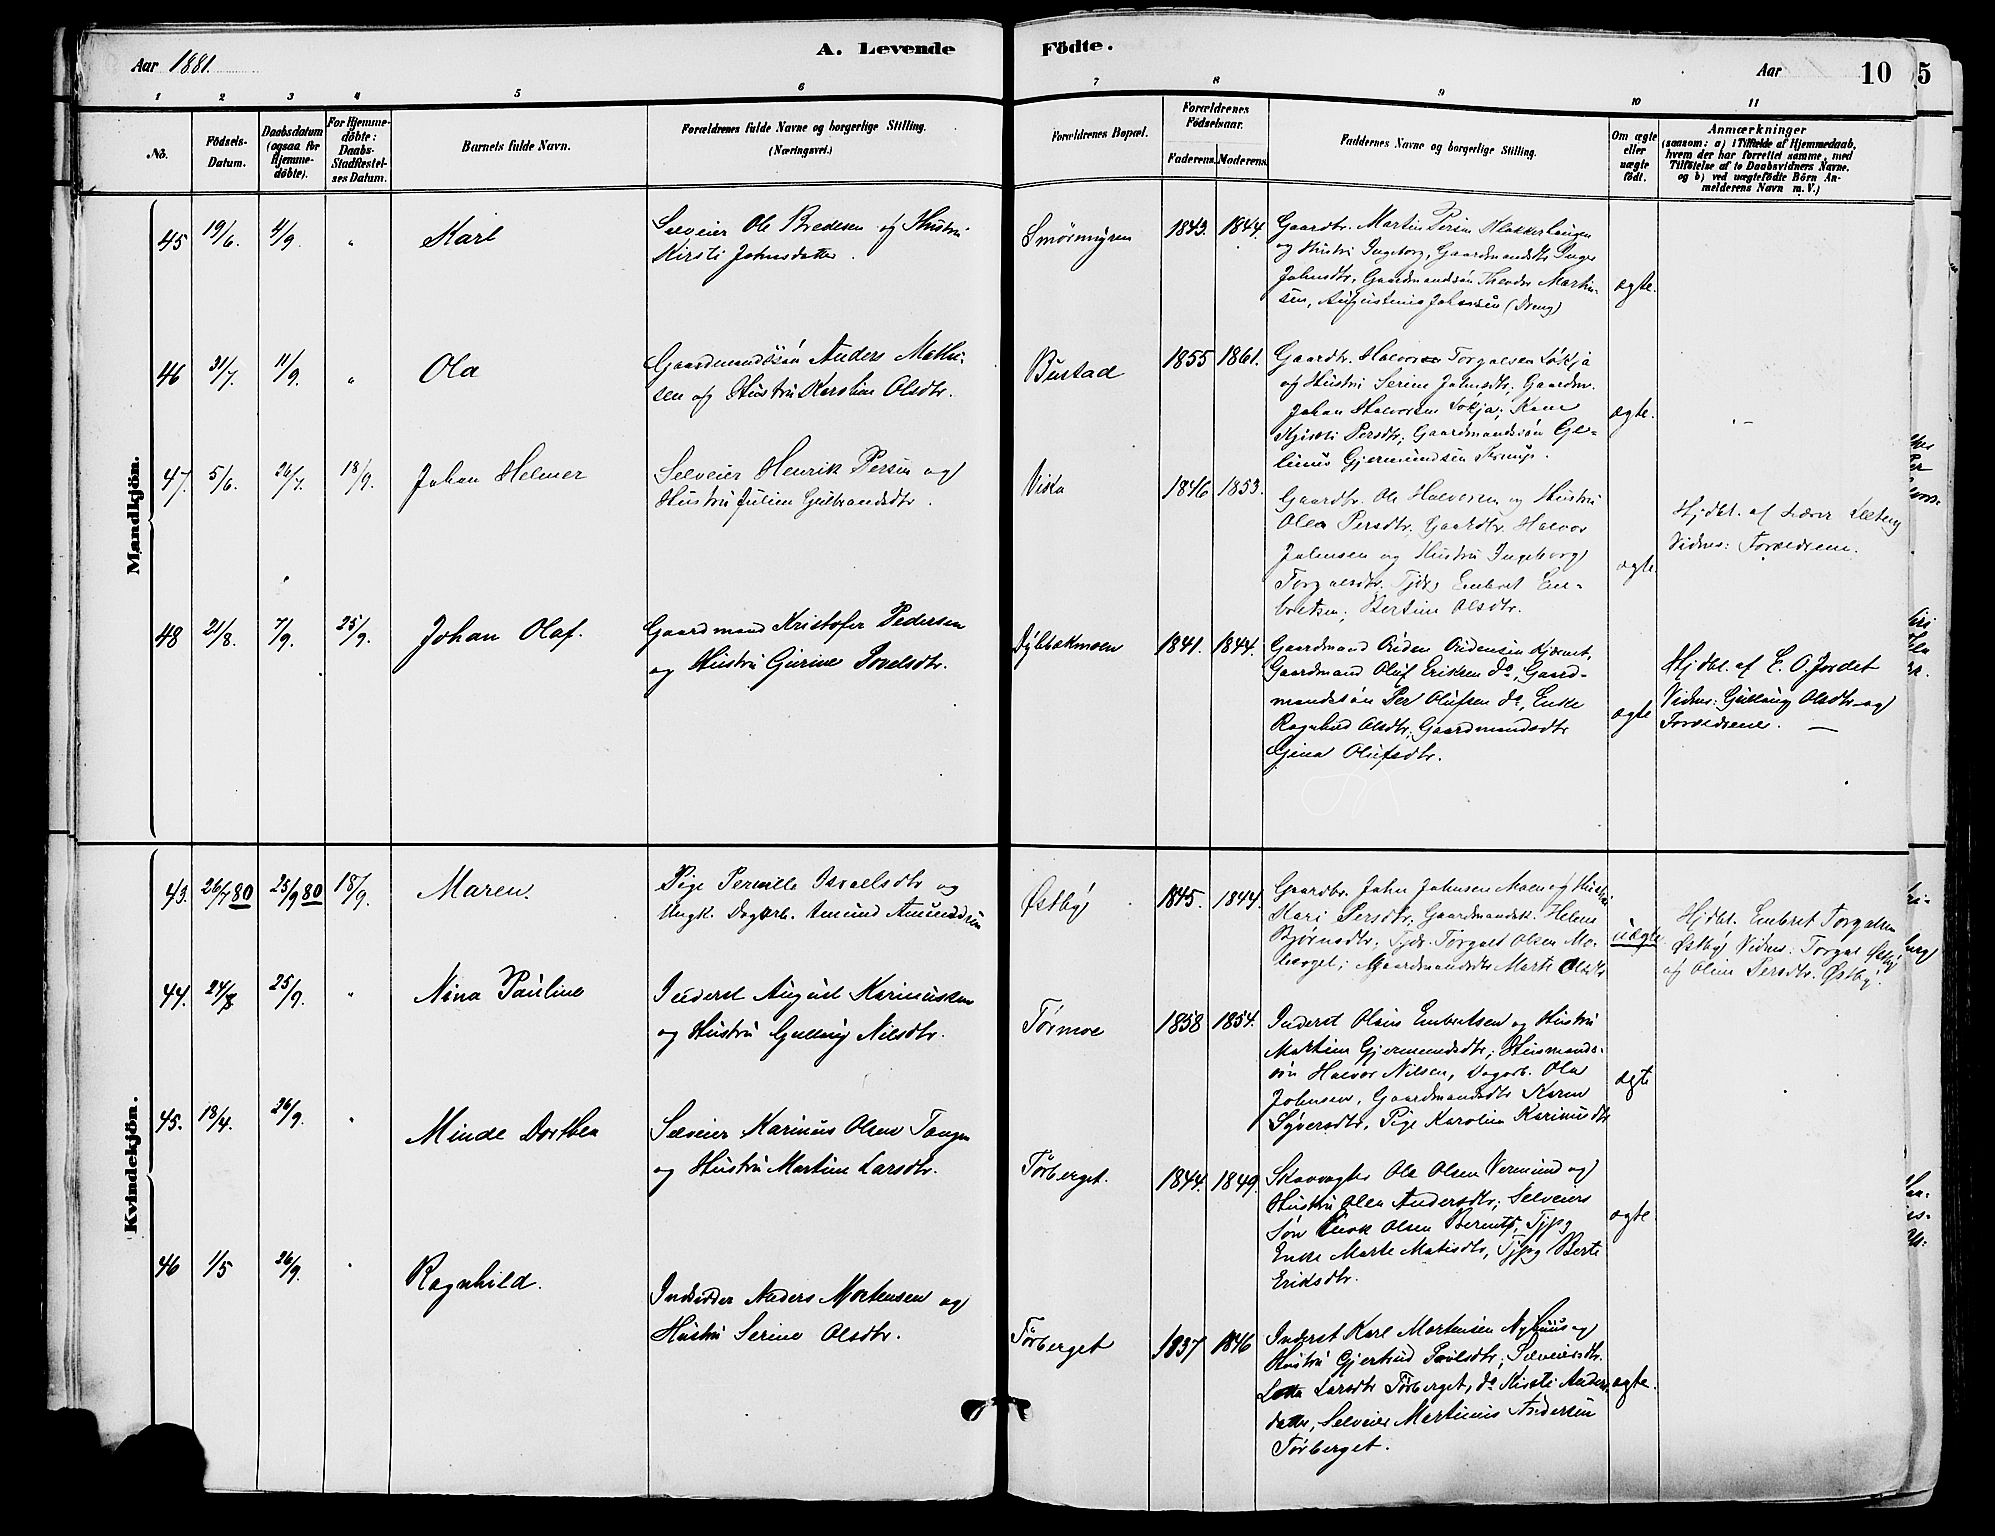 Aar 1881.
A. Levende Födte.
Aar
10
5
1 2 3 4 5 6 7 8 9 10 11
No.
Födsels-
Datum.
Daabsdatum
(ogsaa for
Hjemme-
döbte).
For Hjemme-
döbte:
Daabs-
Stadfestel-
ses Datum.
Barnets fulde Navn.
Forældrenes fulde Navne og borgerlige Stilling.
(Næringsvei.)
Forældrenes Bopæl.
Forældrenes
Födselsaar.
Faderens. Moderens.
Faddernes Navne og borgerlige Stilling.
Om ægte
eller
uægte
født.
Anmærkninger
(saasom: a) i Tilfælde af Hjemmedaab,
hvem der har forrettet samme, med
Tilføielse af to Daabsvidners Navne,
og b) ved uægtefødte Børn An-
melderens Navn m. V.)
Mandkjön.
45 19/6. 4/9. " Karl
Selveier Ole Bredesen og Hustru
Kirsti Johnsdatter.
Smörmyren 1843. 1844.
Gaardbr. Martin Persen
og Hustru Ingeborg, Gaardmandsdtr. Inger
Johnsdtr., Gaardmandssön Theodor Martin-
sen, Augustinus Johnsen (Dreng)
ægte.
46 31/7. 11/9. " Ola
Gaardmandssön Anders Mathi-
sen og Hustru Karoline Olsdtr.
Bustad 1855 1861.
Gaardbr. Halvor Torgalsen Lökja
og Hustru Serine Johnsdtr., Gaardm.
Johan Halvorsen Lökja; Kone
Kjisti Persdtr.; Gaardmandssön
Gjermundsen
ægte.
47. 5/6. 26/7. 18/9. Johan Helmer
Selveier Henrik Persen og
Hustru Juline Gulbrandsdtr.
Vista 1846 1853.
Gaardbr. Ole Halvorsen og Hustru
Olea Persdtr.; Gaardbr. Halvor
Johnsen og Hustru Ingeborg
Torgalsdtr. Embret Em-
bretsen; Bertine Olsdtr.
ægte.
Hjdbt. af Lærer
Vidner: Forældrene.
48 21/8. 7/9. 25/9. Johan Olaf.
Gaardmand Kristofer Pedersen
og Hustru Gurine Israelsdtr.
Dylbækmoen 1841. 1844.
Gaardmand Oliden Olidensen
Gaardmand Oluf Eriksen do, Gaard-
mandssön Per Olufsen do, Enke
Ragnhild Olsdtr., Gaardmandsdtr
Gina Olufsdtr.
ægte
Hjdbt. af E. O. Jordet
Vidner: Gullaug Olsdtr og
Forældrene. —
Kvindekjön.
43. 26/7 80 25/9 80 18/9. Maren.
Pige Pernille Israelsdtr og
Ungk. Dagarb. Amund Amundsön
Östby 1845. 1844.
Gaardbr. John Johnsen Moen og Hustru
Kari Persdtr; Gaardmandsk. Helene
Björnsdtr; Tjdr. Torgal Olsen Mo-
berget; Gaardmandsdtr Marte Olsdtr
uægte
Hjdbt. Embret Torgalsen
Östby Vidner: Torgal Östby
og Oline Persdtr. Östby.
44. 24/8 25/9. " Nina Pauline
Inderst August Karinusen
og Hustru Gullaug Nilsdtr.
Törmoe 1858 1854.
Inderst Olaus Embretsen og Hustru
Martine Gjermundsdtr; Husmands-
sön Halvor Nilsen, Dagarb. Ola
Johnsen, Gaardmandsdtr Karen
Syversdtr, Pige Karoline Karinusdtr
ægte
45. 18/4. 26/9. " Minde Dorthea
Selveier Karinus Olsen Tangen
og Hustru Martine Larsdtr.
Törberget. 1844. 1849.
Skovvogter Ole Olsen Vermund og
Hustru Olea Andersdtr; Selveiers
Sön Enok Olsen Berent, Tjpg
Enke Marte Matisdtr, Tjpg Berte
Eriksdtr.
ægte.
46 1/5 26/9. " Ragnhild.
Indsidder Anders Mortensen og
Hustru Serine Olsdtr.
Törberget 1837 1846
Inderst Karl Mortensen Nyhuus og
Hustru Gjertrud Paulsdtr; Selveiersdtr.
Lotta Larsdtr Törberget, do Kirsti Anders-
datter, Selveier Martinus Andersen
Törberget.
ægte.